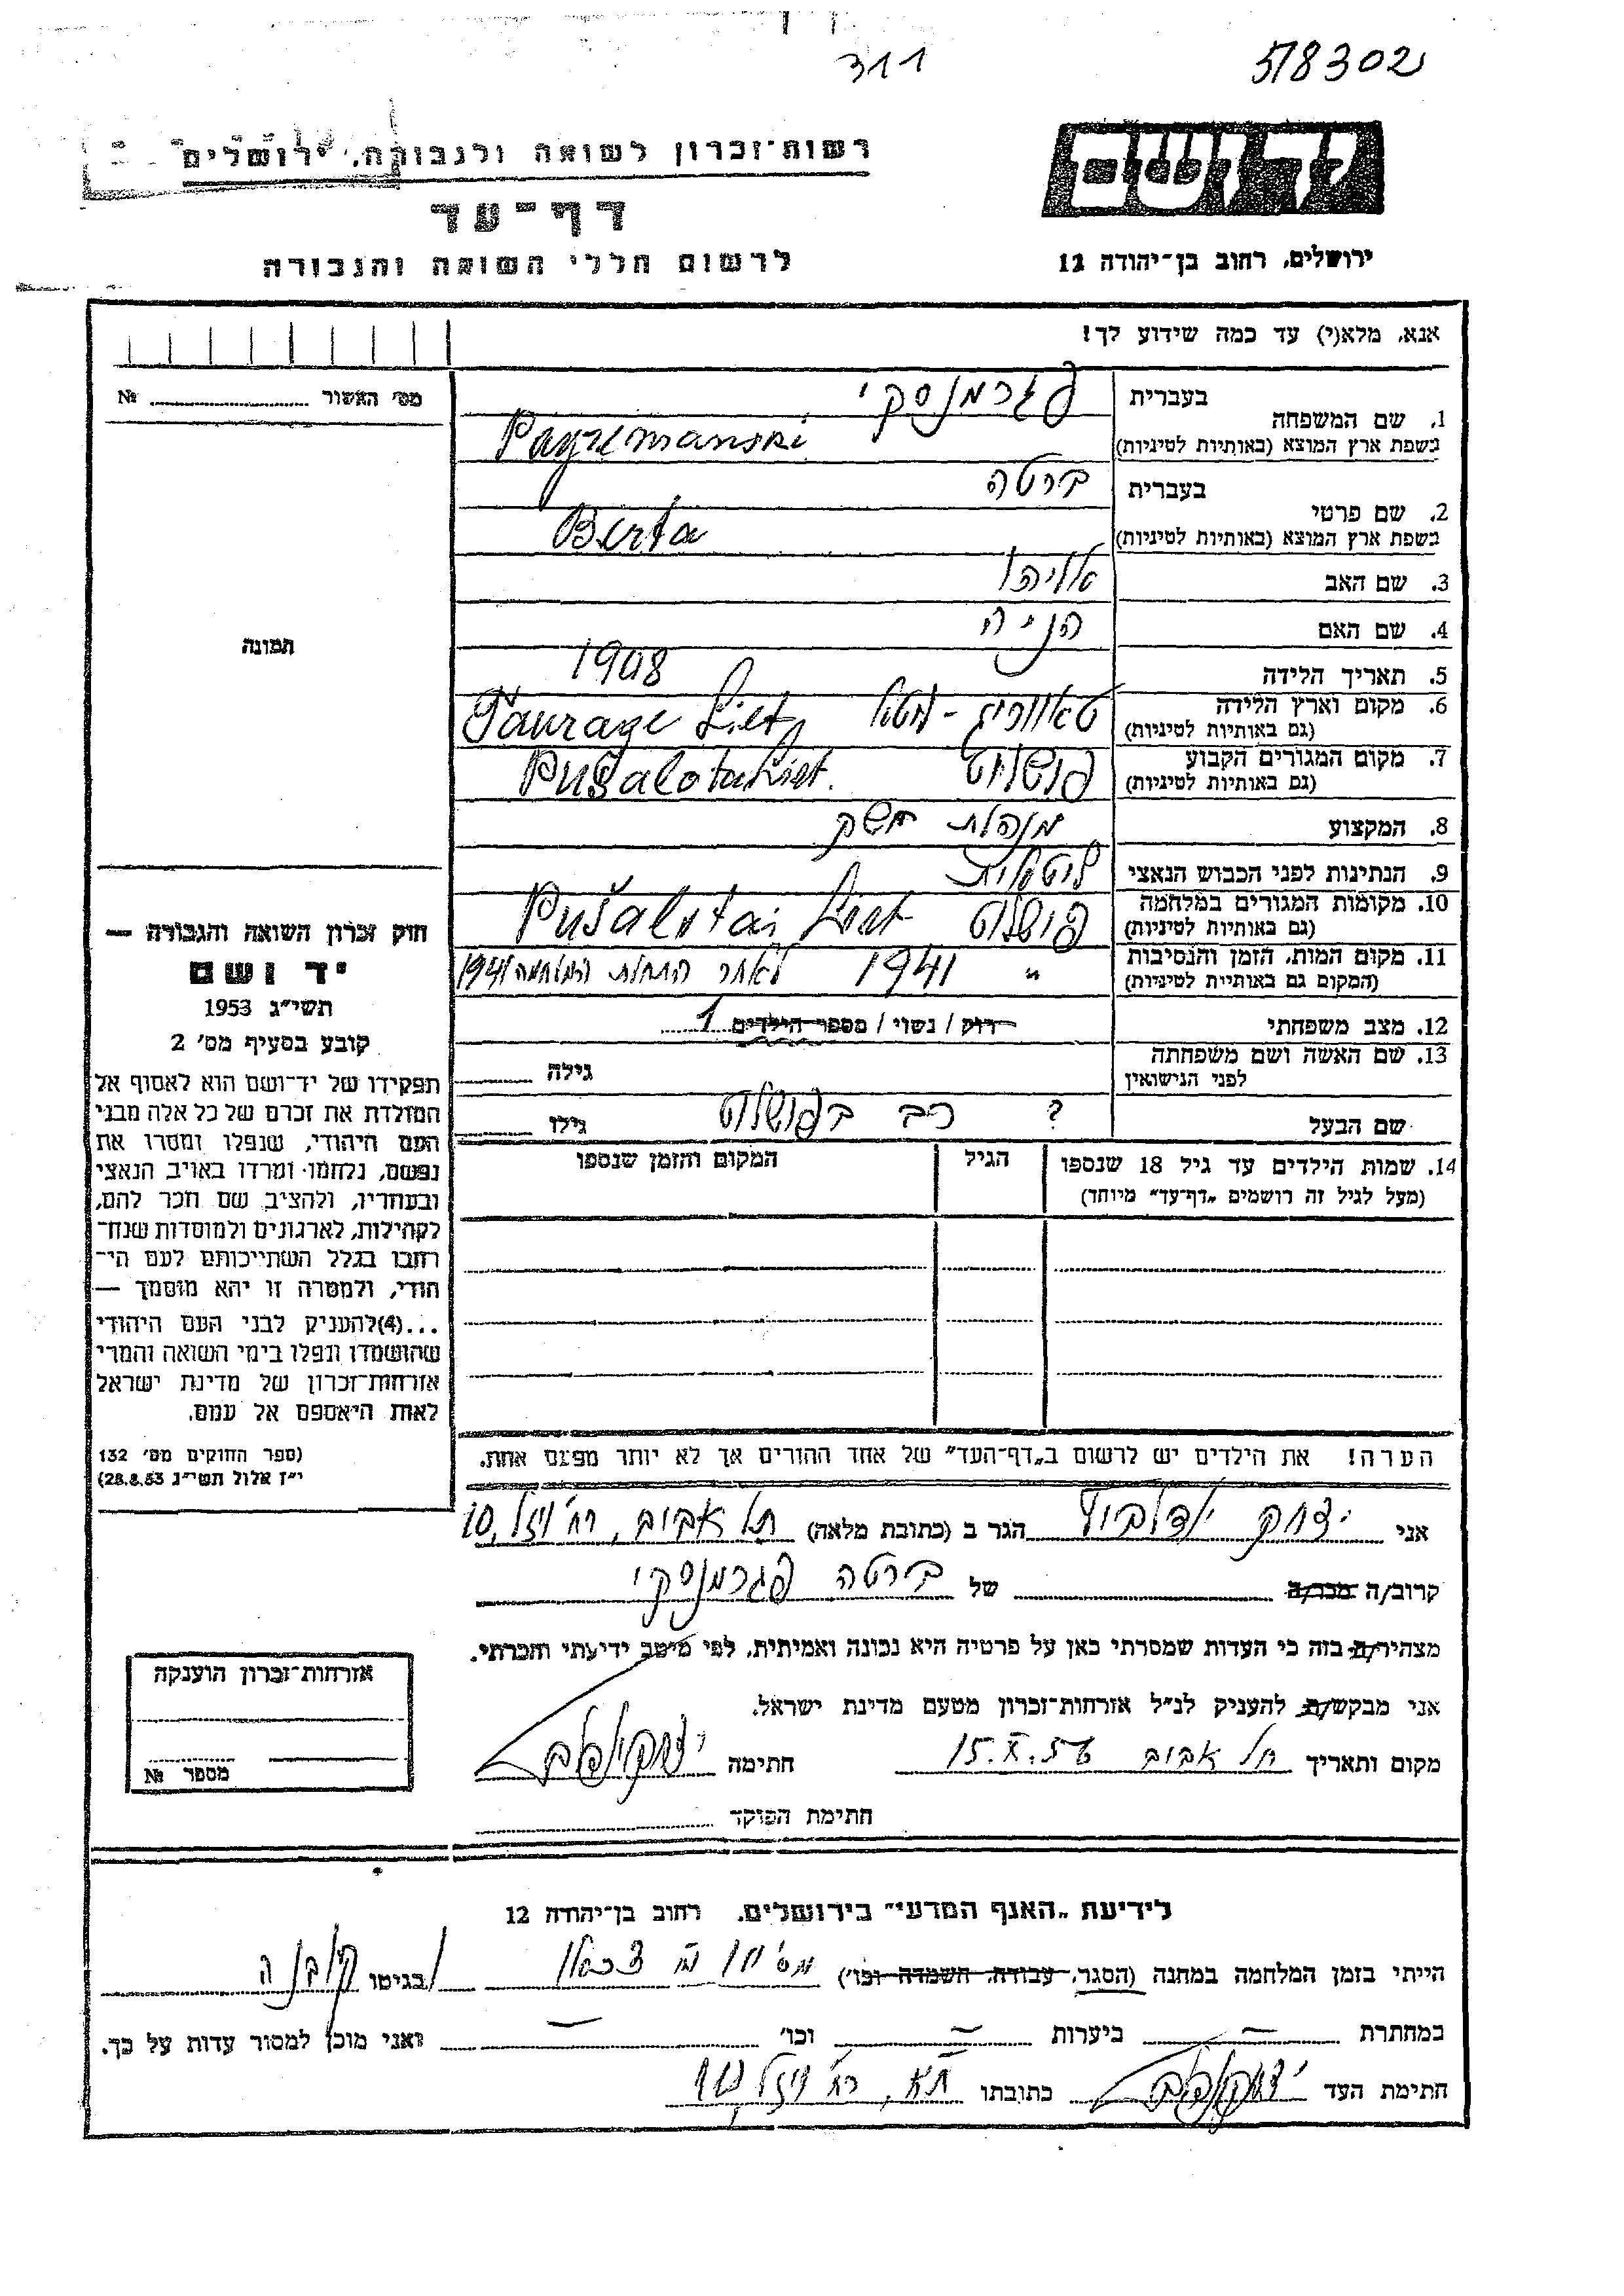 311
518302
רשות-זכרון לשואה ולגבורה, ירושלים
דף-עד
לרשום חללי השואה והגבורה
יד ושם
ירושלים, רחוב בן-יהודה 12
אנא, מלא(י) עד כמה שידוע לך!
מס׳ האשור ........ №
תמונה
1. שם המשפחה
בעברית פגרמנסקי
בשפת ארץ המוצא (באותיות לטיניות) Pagremanski
2. שם פרטי
בעברית ברטה
בשפת ארץ המוצא (באותיות לטיניות) Berta
3. שם האב אליהו
4. שם האם הניה
5. תאריך הלידה 1908
6. מקום וארץ הלידה
(גם באותיות לטיניות) Taurage Liet
7. מקום המגורים הקבוע פושלוט
(גם באותיות לטיניות) Pušalotai Liet.
8. המקצוע מנהלת משק
9. הנתינות לפני הכבוש הנאצי ליטאית
10. מקומות המגורים במלחמה פושלוט
(גם באותיות לטיניות) Pušalotai Liet
11. מקום המות, הזמן והנסיבות
(המקום גם באותיות לטיניות) " 1941 לאחר התחלת המלחמה 1941
12. מצב משפחתי רוק / נשוי / מספר הילדים 1
13. שם האשה ושם משפחתה
לפני הנישואין גילה
שם הבעל ? רב בפושלוט גילו
14. שמות הילדים עד גיל 18 שנספו
(מעל לגיל זה רושמים „דף-עד״ מיוחד)
הגיל
המקום והזמן שנספו
חוק זכרון השואה והגבורה —
יד ושם
תשי״ג 1953
קובע בסעיף מס׳ 2
תפקידו של יד-ושם הוא לאסוף אל
המולדת את זכרם של כל אלה מבני
העם היהודי, שנפלו ומסרו את
נפשם, נלחמו ומרדו באויב הנאצי
ובעוזריו, ולהציב שם וזכר להם,
לקהילות, לארגונים ולמוסדות שנח־
רבו בגלל השתייכותם לעם הי־
הודי, ולמטרה זו יהא מוסמך —
...(4)להעניק לבני העם היהודי
שהושמדו ונפלו בימי השואה והמרי
אזרחות-זכרון של מדינת ישראל
לאות היאספם אל עמם.
(ספר החוקים מס׳ 132
י״ז אלול תשי״ג 28.8.53)
הערה! את הילדים יש לרשום ב„דף-העד״ של אחד ההורים אך לא יותר מפעם אחת.
אני יצחק הגר ב (כתובת מלאה) תל אביב, רח׳ 10
קרוב/ה מכר/ה של ברטה פגרמנסקי
מצהיר/ה בזה כי העדות שמסרתי כאן על פרטיה היא נכונה ואמיתית, לפי מיטב ידיעתי והכרתי.
אני מבקש/ת להעניק לנ״ל אזרחות-זכרון מטעם מדינת ישראל.
מקום ותאריך תל אביב 15.X.56 חתימה
חתימת הפוקד
אזרחות-זכרון הוענקה
מספר №
לידיעת „האגף המדעי״ בירושלים, רחוב בן-יהודה 12
הייתי בזמן המלחמה במחנה (הסגר, עבודה, השמדה וכו׳) בגיטו קובנה
במחתרת — ביערות — וכו׳ — ואני מוכן למסור עדות על כך.
חתימת העד כתובתו ת״א, רח׳ 10